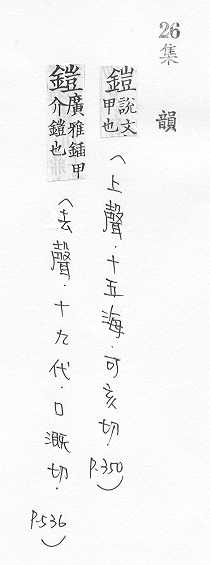 26
集韻
鎧說文甲也(上聲.十五海.可亥切.P.350)
鎧廣雅錘甲介鎧也(去聲.十九代.口溉切.P.536)